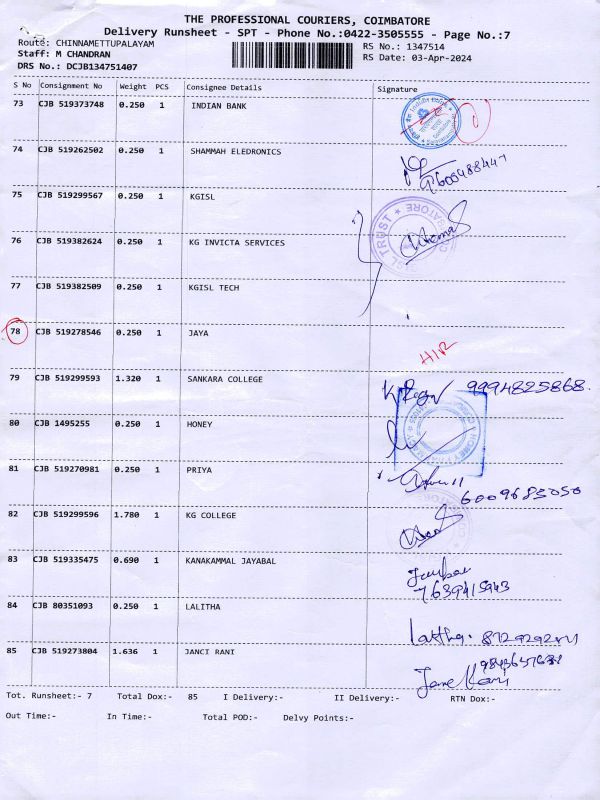 THE PROFESSIONAL COURIERS, COIMBATORE
Delivery Runsheet - SPT - Phone No.:0422-3505555 - Page No.:7
Route: CHINNAMETTUPALAYAM RS No.: 1347514
Staff: M CHANDRAN RS Date: 03-Apr-2024
DRS No.: DCJB134751407
S No Consignment No Weight PCS Consignee Details Signature
73 CJB 519373748 0.250 1 INDIAN BANK
74 CJB 519262502 0.250 1 SHAMMAH ELEDRONICS
9600488447
75 CJB 519299567 0.250 1 KGISL
76 CJB 519382624 0.250 1 KG INVICTA SERVICES
77 CJB 519382509 0.250 1 KGISL TECH
78 CJB 519278546 0.250 1 JAYA
79 CJB 519299593 1.320 1 SANKARA COLLEGE 9994825868.
80 CJB 1495255 0.250 1 HONEY
81 CJB 519270981 0.250 1 PRIYA
6009685050
82 CJB 519299596 1.780 1 KG COLLEGE
83 CJB 519335475 0.690 1 KANAKAMMAL JAYABAL
7639415943
84 CJB 80351093 0.250 1 LALITHA
85 CJB 519273804 1.636 1 JANCI RANI
Tot. Runsheet:- 7 Total Dox:- 85 I Delivery:- II Delivery:- RTN Dox:-
Out Time:- In Time:- Total POD:- Delvy Points:-